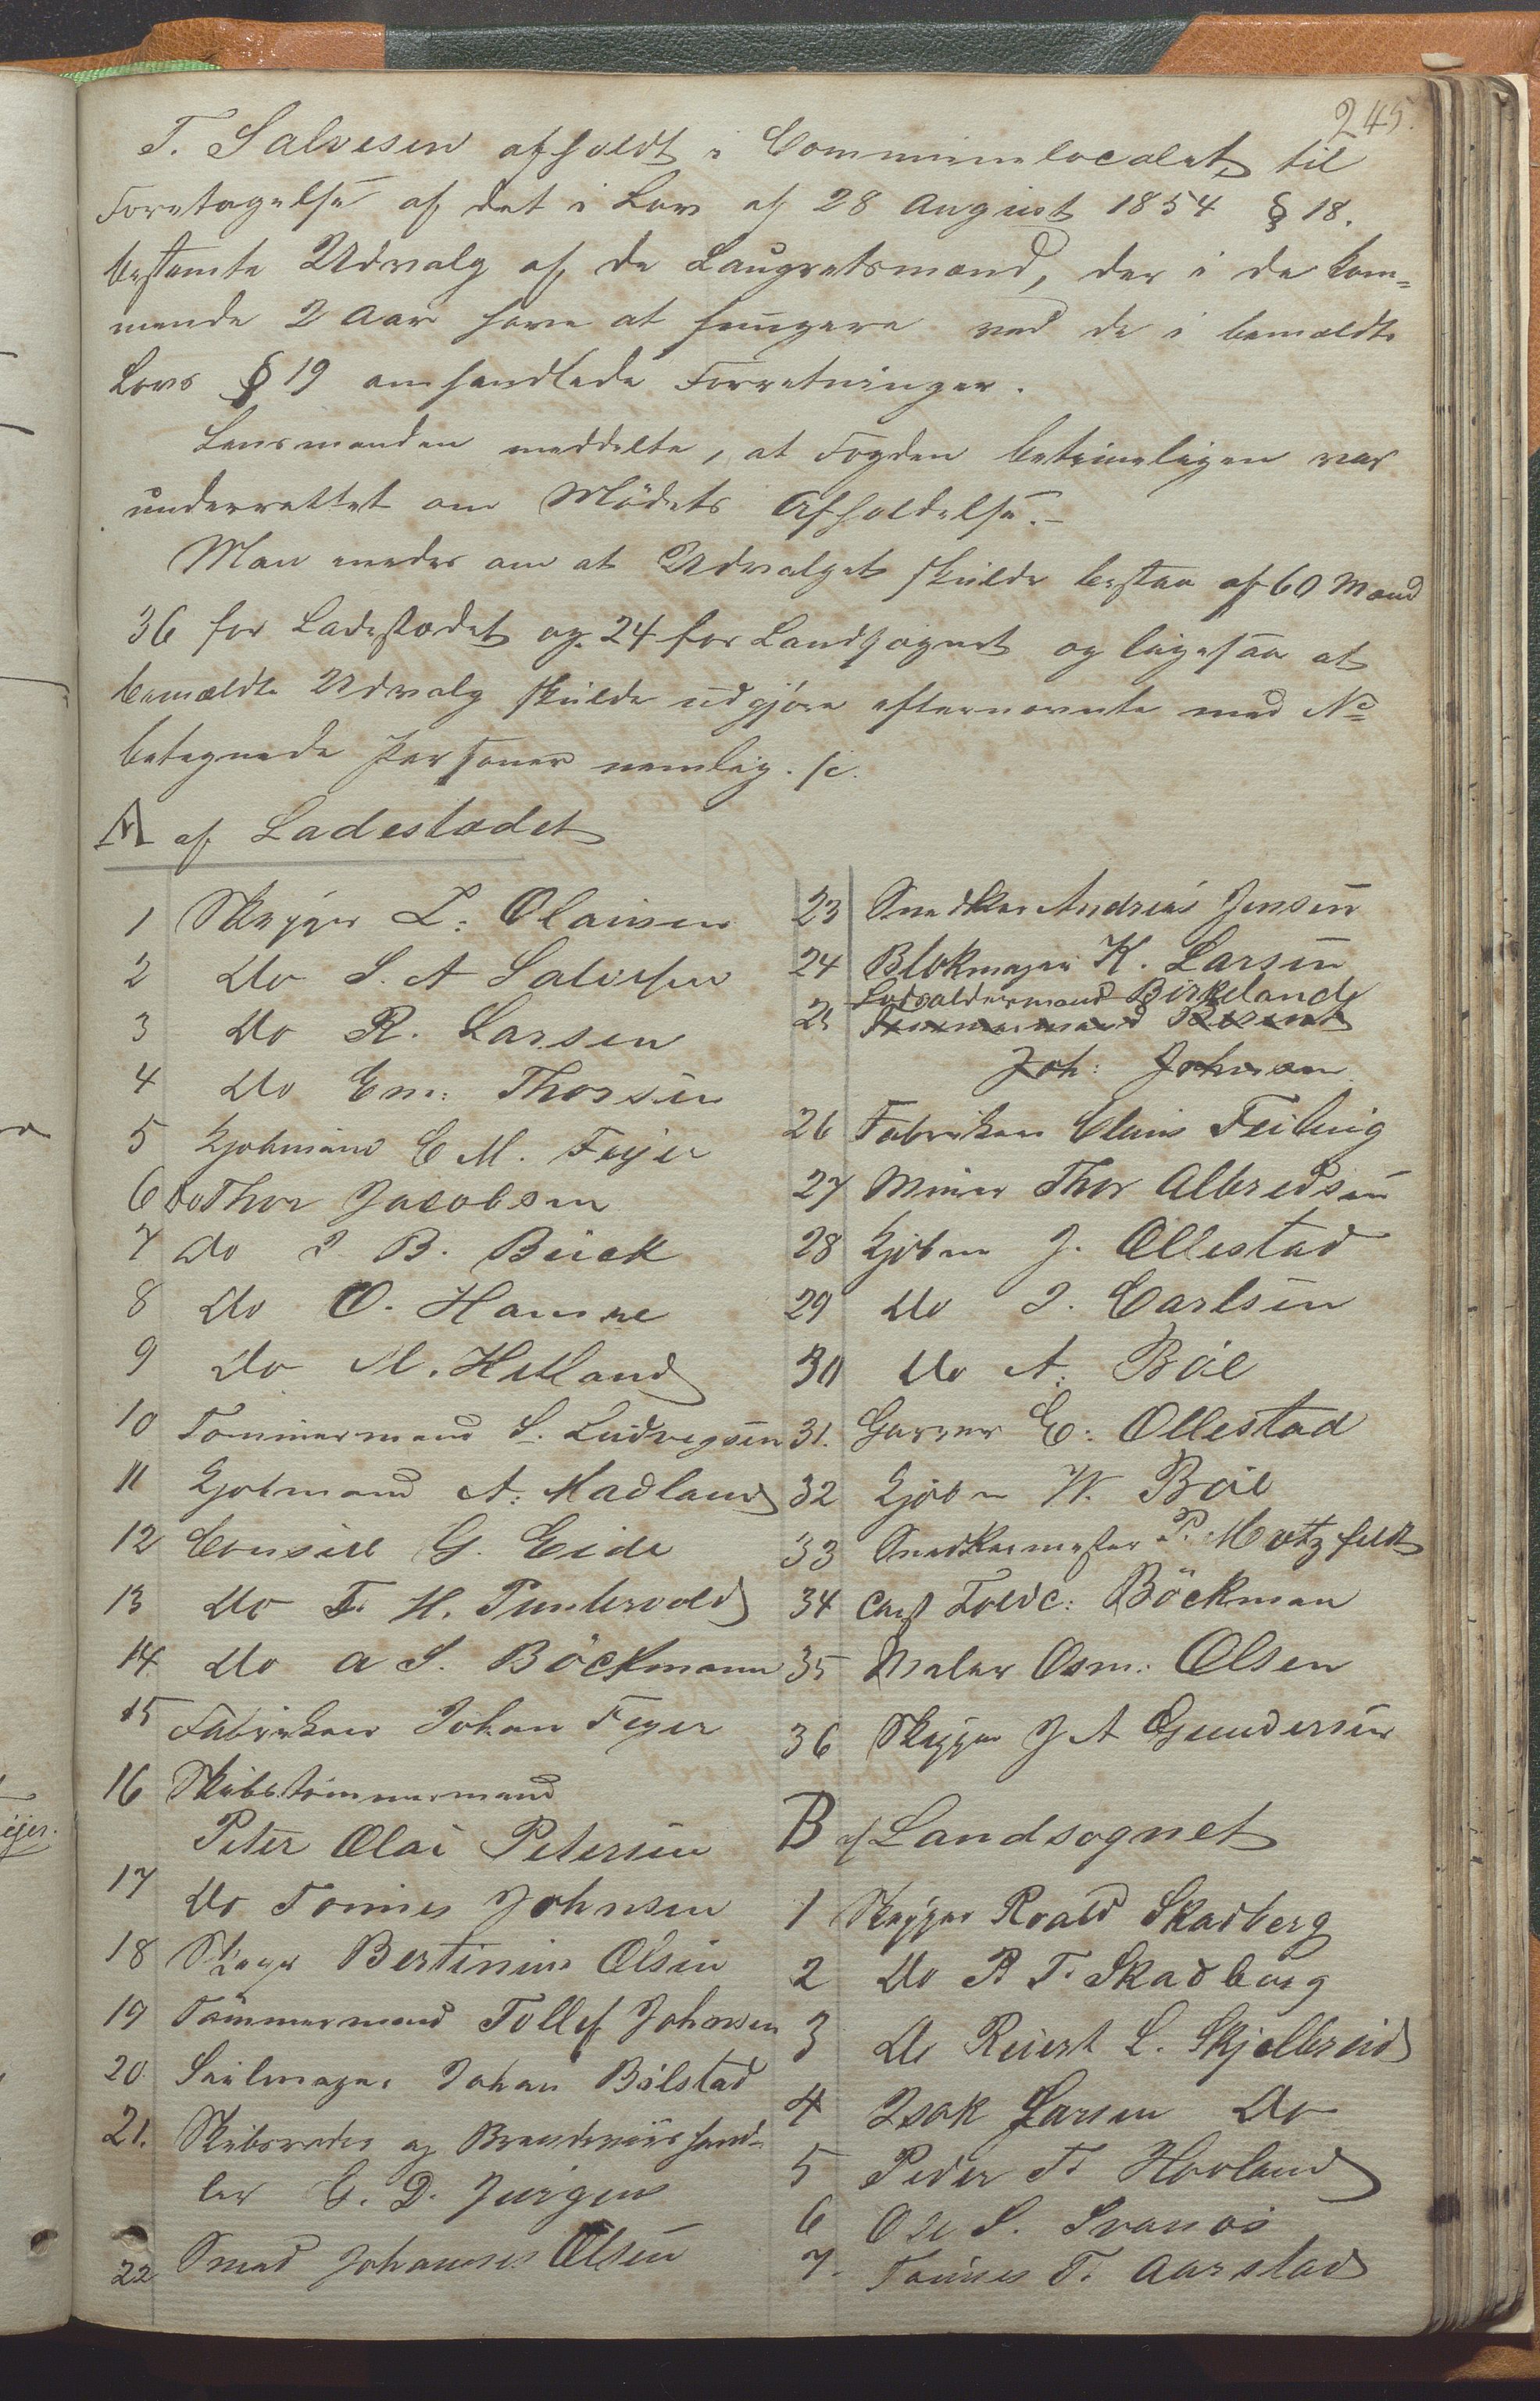 245.
T. Salvesen afholdt i Communelocalet til
Foretagelse af det i Lov af 28 August 1854 § 18.
bestemte Udvalg af de Laugretsmænd, der i de kom-
mende 2 Aar have at fungere ved de i bemældte
Lovs § 19 omhandlede Forretninger.
Lensmanden meddelte, at Fogden betimeligen var
underrettet om Mödets Afholdelse.-
Man enedes om at Udvalget skulde bestaa af 60 Mænd
36 for Ladestedet og 24 for Landsognet og ligesaa at
bemældte Udvalg skulde udgjöre efternevnte med No
betegnede Personer nemlig.
A af Ladestædet
1 Skipper L. Olaisen
2 Do S. A Salvesen
3 Do R. Larsen
4 Do Em: Thorsen
5 Kjobmand C M. Feyer
6 Do Thor Jacobsen
7 Do I B. Buck
8 Do O. Hamre
9 Do M. Hetland
10 Tommermand S. Ludvigsen
11 Kjobmand A. Madland
12 Consul G. Eide
13 Do T. H. Puntervold
14 Do A S. Böckmann
15 Fabrikør Johan Feyer
16 Skibstömmermand
Peter Olai Petersen
17 Do Tonnes Johnsen
18 Skipp Bertinius Olsen
19 Tömmermand Tollef Johnsen
20 Seilmager Johan Bilstad
21. Skibsreder og Brændeviishand-
ler C. D. Jürgens
22 Smed Johannes Olsen
23 Snedker Andreas Jensen
24 Blokmager K. Larsen
25 Lodsaldermand Birkeland
Joh: Johnsen
26 Fabrikør Claus Feilberg
27 Murer Thor Albredsen
28 Kjöbm J. Ollestad
29 Do I. Carlsen
30 Do A. Böe
31. Garver E. Ollestad
32 Kjöbm W. Böe
33 Snedkermester P. Motzfeldt
34 Const Toldc: Böckman
35 Maler Osm: Olsen
36 Skipper J A Gundersen
B af Landsognet
1 Skipper Roald Skadberg
2 Do P. T. Skadberg
3 Do Reiert L. Skjelbreid
4 Isak Larsen Do
5 Peder T. Hovland
6 Ole S. Svanes
7. Tonnes T. Aarstad